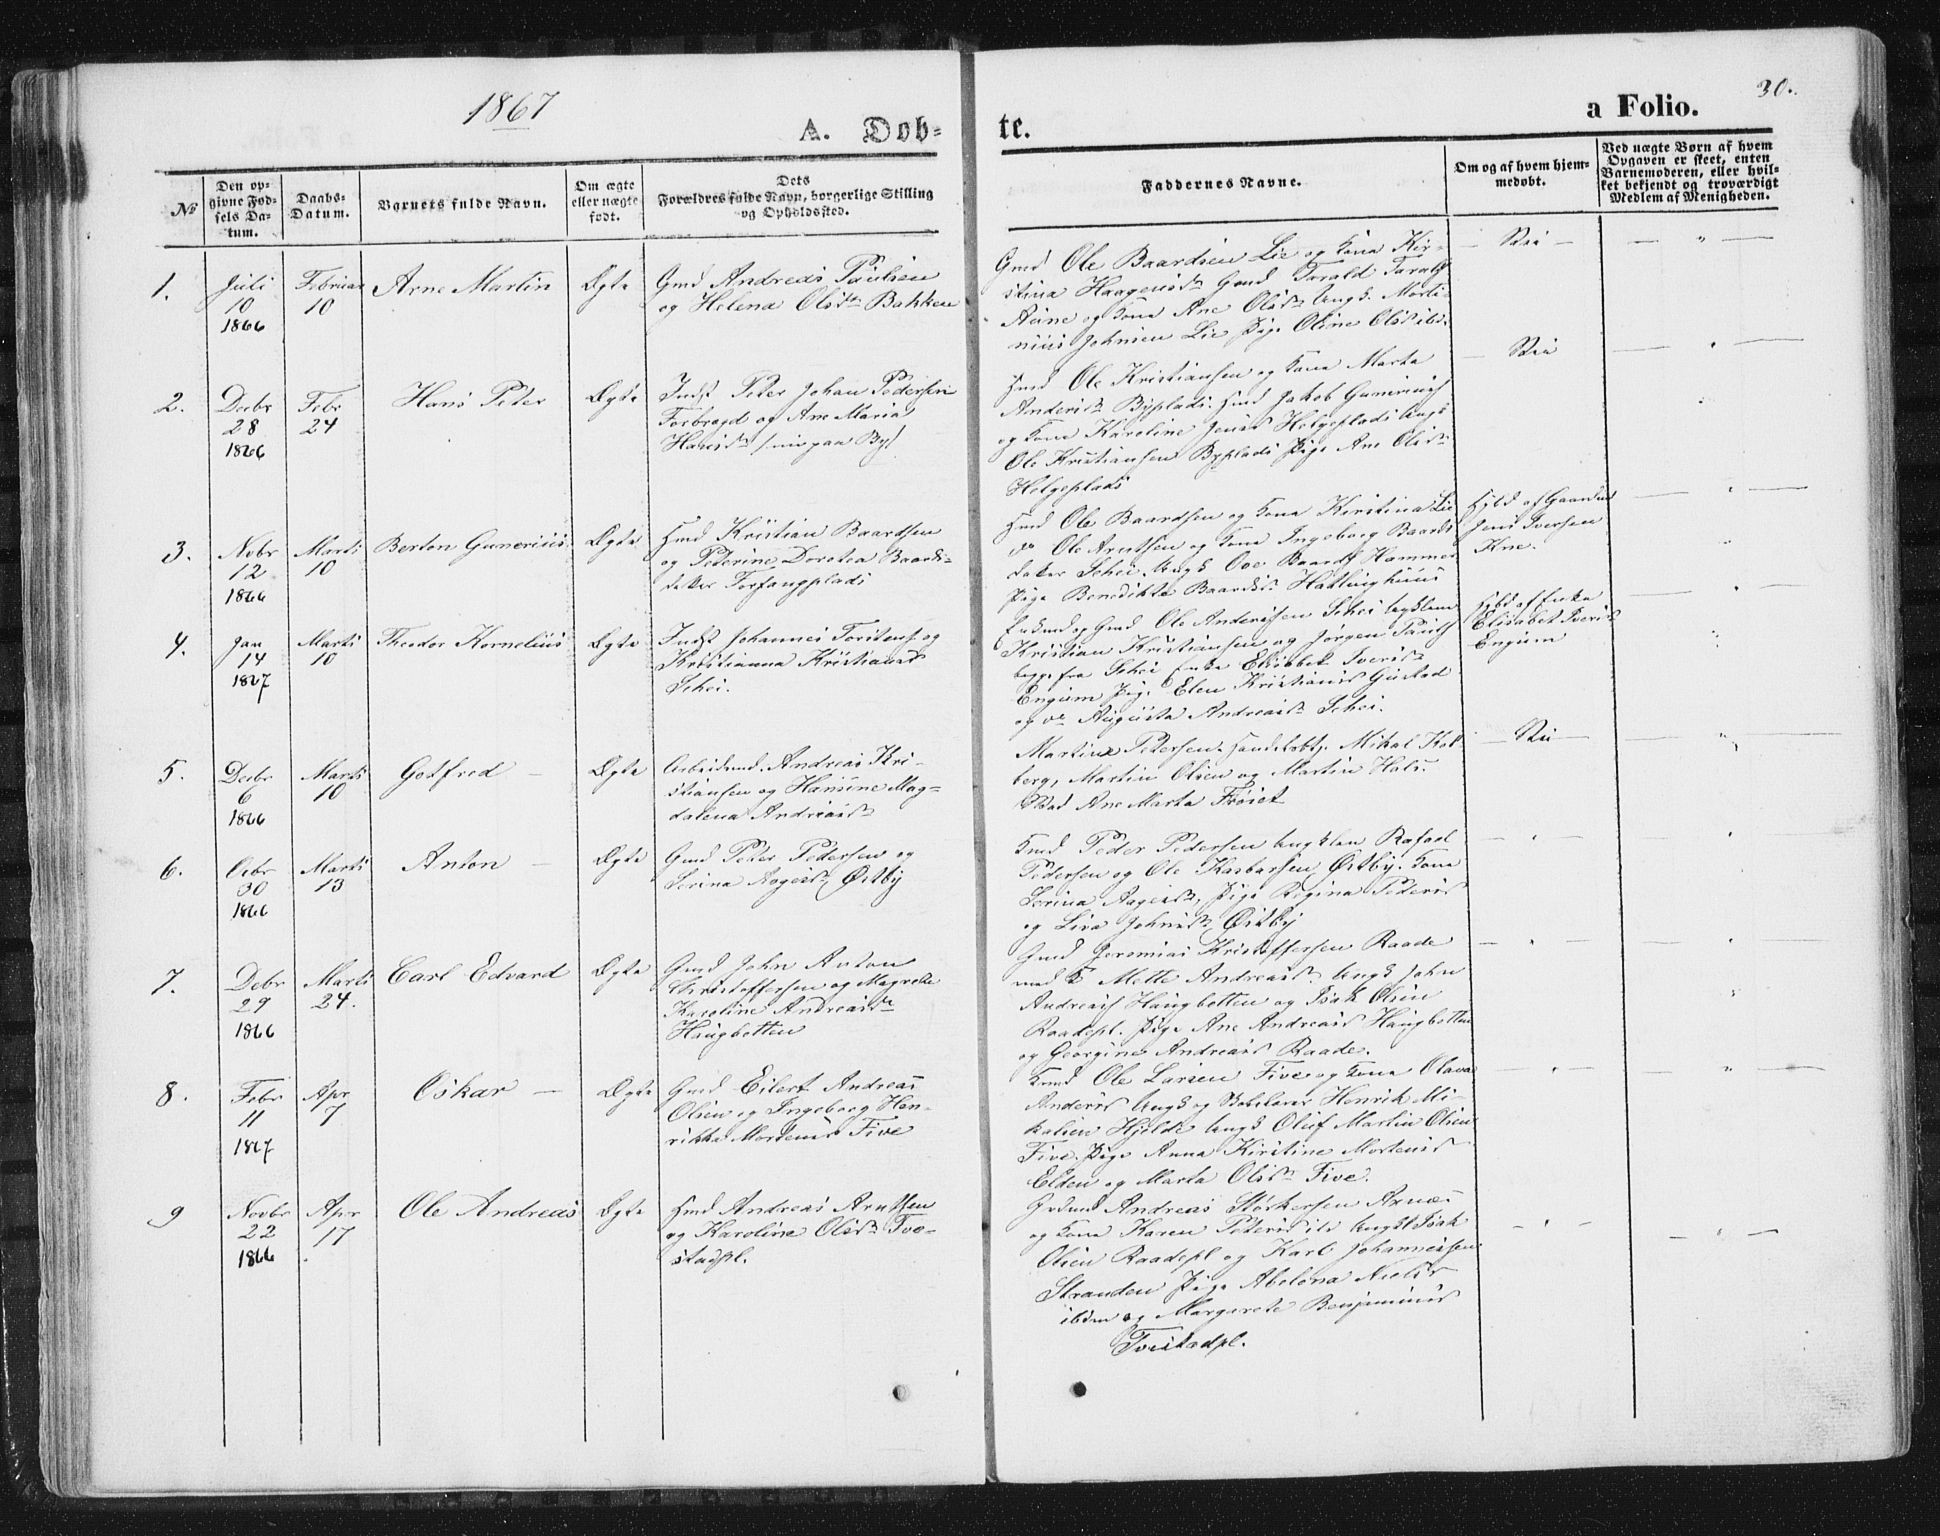 1867
A. Døb=
te.
a Folio.
30.
№
Den op=
givne Fød=
sels Da=
tum.
Daabs=
Datum.
Barnets fulde Navn.
Om ægte
eller uægte
født.
Dets
Forældres fulde Navn, borgerlige Stilling
og Opholdssted.
Faddernes Navne.
Om og af hvem hjem=
medøbt.
Ved uægte Børn af hvem
Opgaven er skeet, enten
Barnemoderen, eller hvil=
ket bekjendt og troværdigt
Medlem af Menigheden.
1.
Juli
10
1866
Februar
10
Arne Martin
Ægte
Gmd Andreas Paulsen
og Helena Olsdr Bakken
Gmd Ole Baardsen Lie og Kona Kir-
stina Haagensdr Gmd Tarald
og Kona Ane Olsdr Ungk. Marti-
nius Johnsen Lie Pige Oline Olsd ibd.
2.
Decbr
28
1866
Febr
24
Hans Peter
Ægte
Indst Peter Johan Pedersen
Forbregd og Ane Maria
Hansdr
Hmd Ole Kristiansen og Kona Marta
Andersdr Byplads. Hmd Jakob Gunerius
og Kona Karoline Jensd Helgeplads Ungk
Ole Kristiansen Byplads Pige Ane Olsdr
Helgeplads
3.
Nobr
12
1866
Marts
10
Berton Gunerius
Ægte
Hmd Kristian Baardsen
og Peterine Dorotea Baards-
datter Forfangplads
Hmd Ole Baardsen og Kona Kirstina Lie
do Ole Arntsen og Kona Ingeborg Baards
datter Schei. Ungk Ove Baards Hammer
Pige Benedikte Baardsdr Hatlinghuus
Hjbd af Gaardmd
Jens Iversen
Kne.
4.
Jan
14
1867
Marts
10
Theodor Kornelius
Ægte
Indst Johannes Torstens. og
Kristianna Kristiansd
Schei.
Enkmd og Gmd Ole Andersen Schei Ungklene
Kristian Kristiansen og Jørgen Pauls
begge fra Schei Enke Elisabet Iversdr
Engum Pige Elen Kristiansd Gustad
og do Augusta Andreasdr Schei.
Hjbd af Enke
Elisabet Iversd
Engum
5.
Decbr
6
1866
Marts
10
Gotfred
Ægte
Arbeidsmd. Andreas Kri-
stiansen og Hansine Mag=
dalena Andreasdr
Martin Petersen Handelsbtj. Mikal Kol
berg, Martin Olsen og Martin Hals.
Mad Ane Marta Frøset
6.
30
1866
Marts
13
Anton
Ægte
Gmd Peter Pedersen og
Serina Aagesdr Østby
Gmd Peder Pedersen Ungklen Rafael
Pedersen og Ole Kasbarsen Østby. Kona
Serina Aagesdr, Pige Regina Pedersd
og Lisa Johnsdr Østby
7.
Debr
29
1866
Marts
24.
Carl Edvard
Ægte
Gmd John Anton
Christoffersen og Magrete
Karoline Andreasdr
Haugbotten
Gmd Jeremias Kristoffersen Raade
med K Mette Andreasd. Ungk John
Andreass Haugbotten og Isak Olsen
Raadepl. Pige Ane Andreasd Haugbotten
og Georgine Andreasd Raade.
8.
Febr
11
1867
Apr
7
Oskar
Ægte
Gmd Eilert Andreas
Olsen og Ingeborg Hen-
rikke Mortensd Five
Gmd Ole Larsen Five og Kona Olava
Andersd Ungk og Henrik Mi-
kalsen Hjelde Ungk Oluf Martin Olsen
Five. Pige Anna Kirstine Mortensd
Elden og Marta Olsdr Five.
9
Novbr
22
1866
Apr
17
Ole Andreas
Ægte
Hmd Andreas Arntsen
og Karoline Olsdr Tve-
stadpl.
Andreas Størkersen Aunæs
og Kona Karen Petersd ibd Ungkl Isak
Olsen Raadepl og Karl Johannessen
Stranden Pige Abelona Nielsd
ibdm og Margarete Benjaminsd
Tvestadpl.